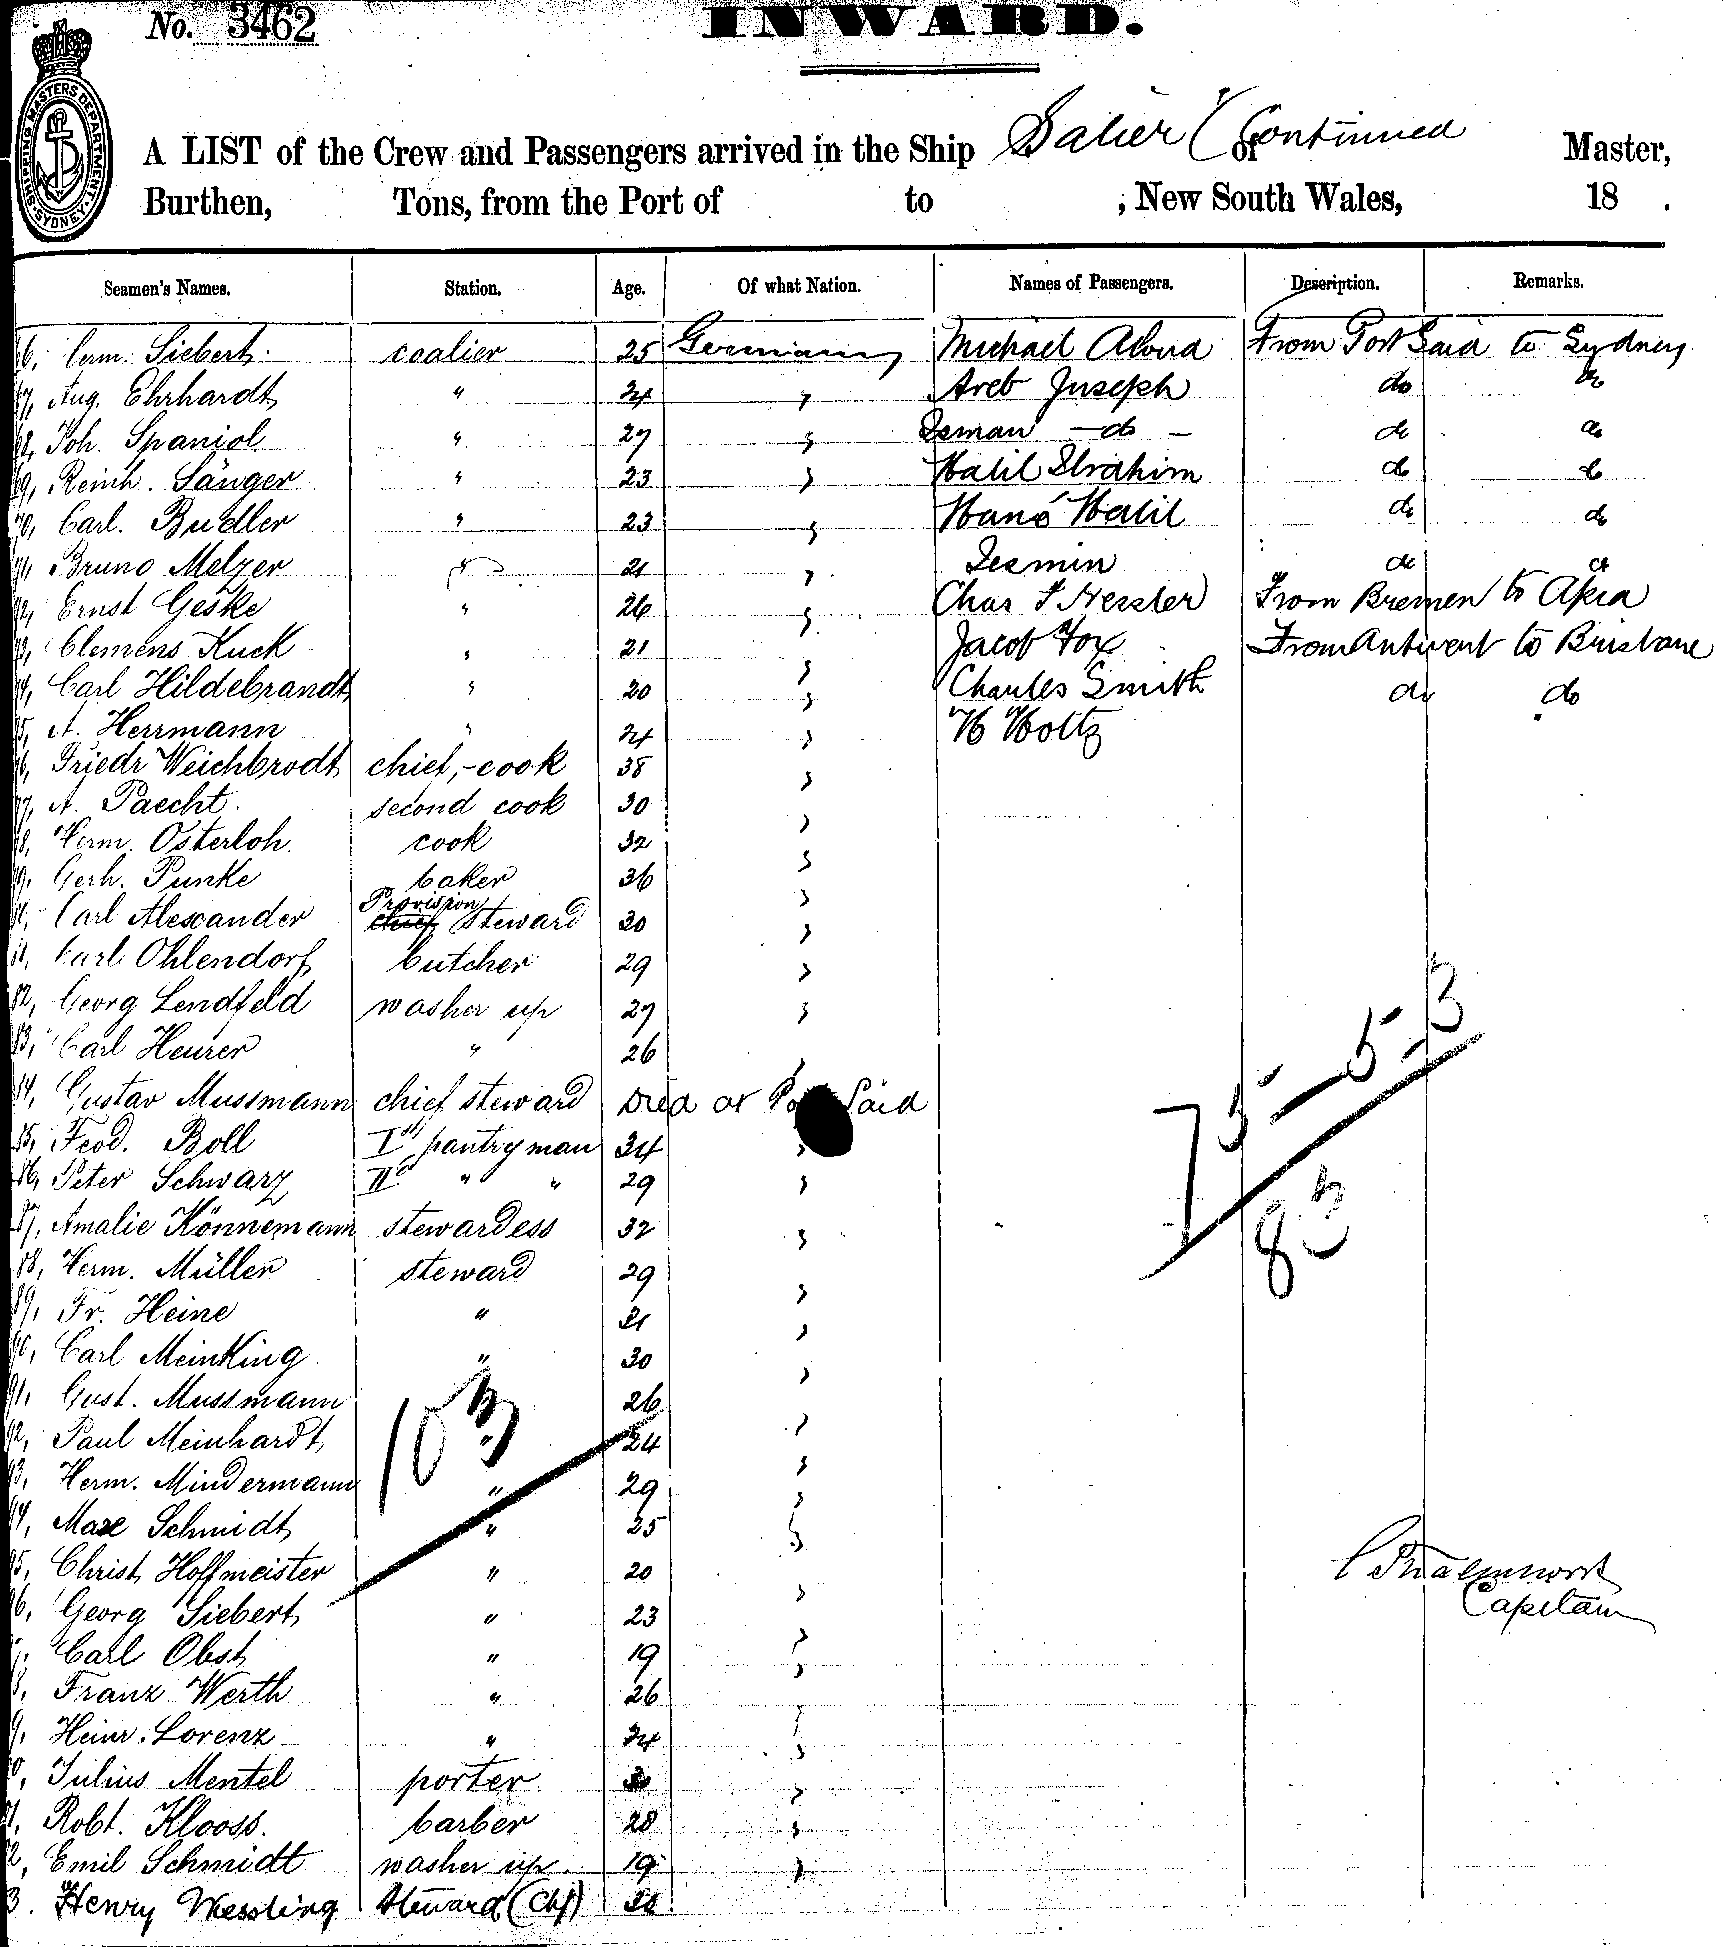 No. 3462
INWARD.
SHIPPING MASTERS DEPARTMENT SYDNEY
A LIST of the Crew and Passengers arrived in the Ship Salier (Continued of Master,
Burthen, Tons, from the Port of to , New South Wales, 18 .
Seamen's Names. Station. Age. Of what Nation. Names of Passengers. Description. Remarks.
Siebert coalier 25 Germany Michael From Port Said to Sydney
Aug. Ehrhardt " 24 " Areb Juseph do do
Joh. Spaniol " 27 " Isman - do - do do
Reinh. Sänger " 23 " Halil Ibrahim do do
70, Carl. Budler " 23 " Halil do do
Bruno Melzer " 21 " do do
Ernst Geske " 26 " Chas From Bremen to Apia
Clemens Kuck " 21 " Jacob Fox From Antwerp to Brisbane
Carl Hildebrandt " 20 " Charles Smith do do
A. Herrmann " 24 " H Holtz
Friedr Weichbrodt chief,-cook 38 "
A. Paecht. second cook 30 "
Herm. Osterloh. cook 32 "
Gerh. Punke baker 36 "
Carl Alexander Provision chief steward 30 "
Carl Ohlendorf butcher 29 "
82, Georg Lendfeld washer up 27 "
83, Carl Heurer " 26 "
84, Gustav Mussmann chief steward Died at Port Said
85, Feod. Boll Ist pantryman 34 "
86, Peter Schwarz IId " " 29 "
87, Amalie Könnemann stewardess 32 "
88, Herm. Müller steward 29 "
89, Fr. Heine " 21 "
90, Carl Meinking " 30 "
91, Gust. Mussmann " 26 "
92, Paul Meinhardt " 24 "
93, Herm. Mindermann " 29 "
94, Max Schmidt " 25 "
95, Christ Hoffmeister " 20 "
96, Georg Siebert " 23 "
Carl Obst " 19 "
Franz Werth " 26 "
Heinr. Lorenz " 24 "
Julius Mentel porter "
Robt. Klooss. barber 28 "
Emil Schmidt washer up. 19 "
3. Henry Wessling Steward (Chf)
103
83
Capitain